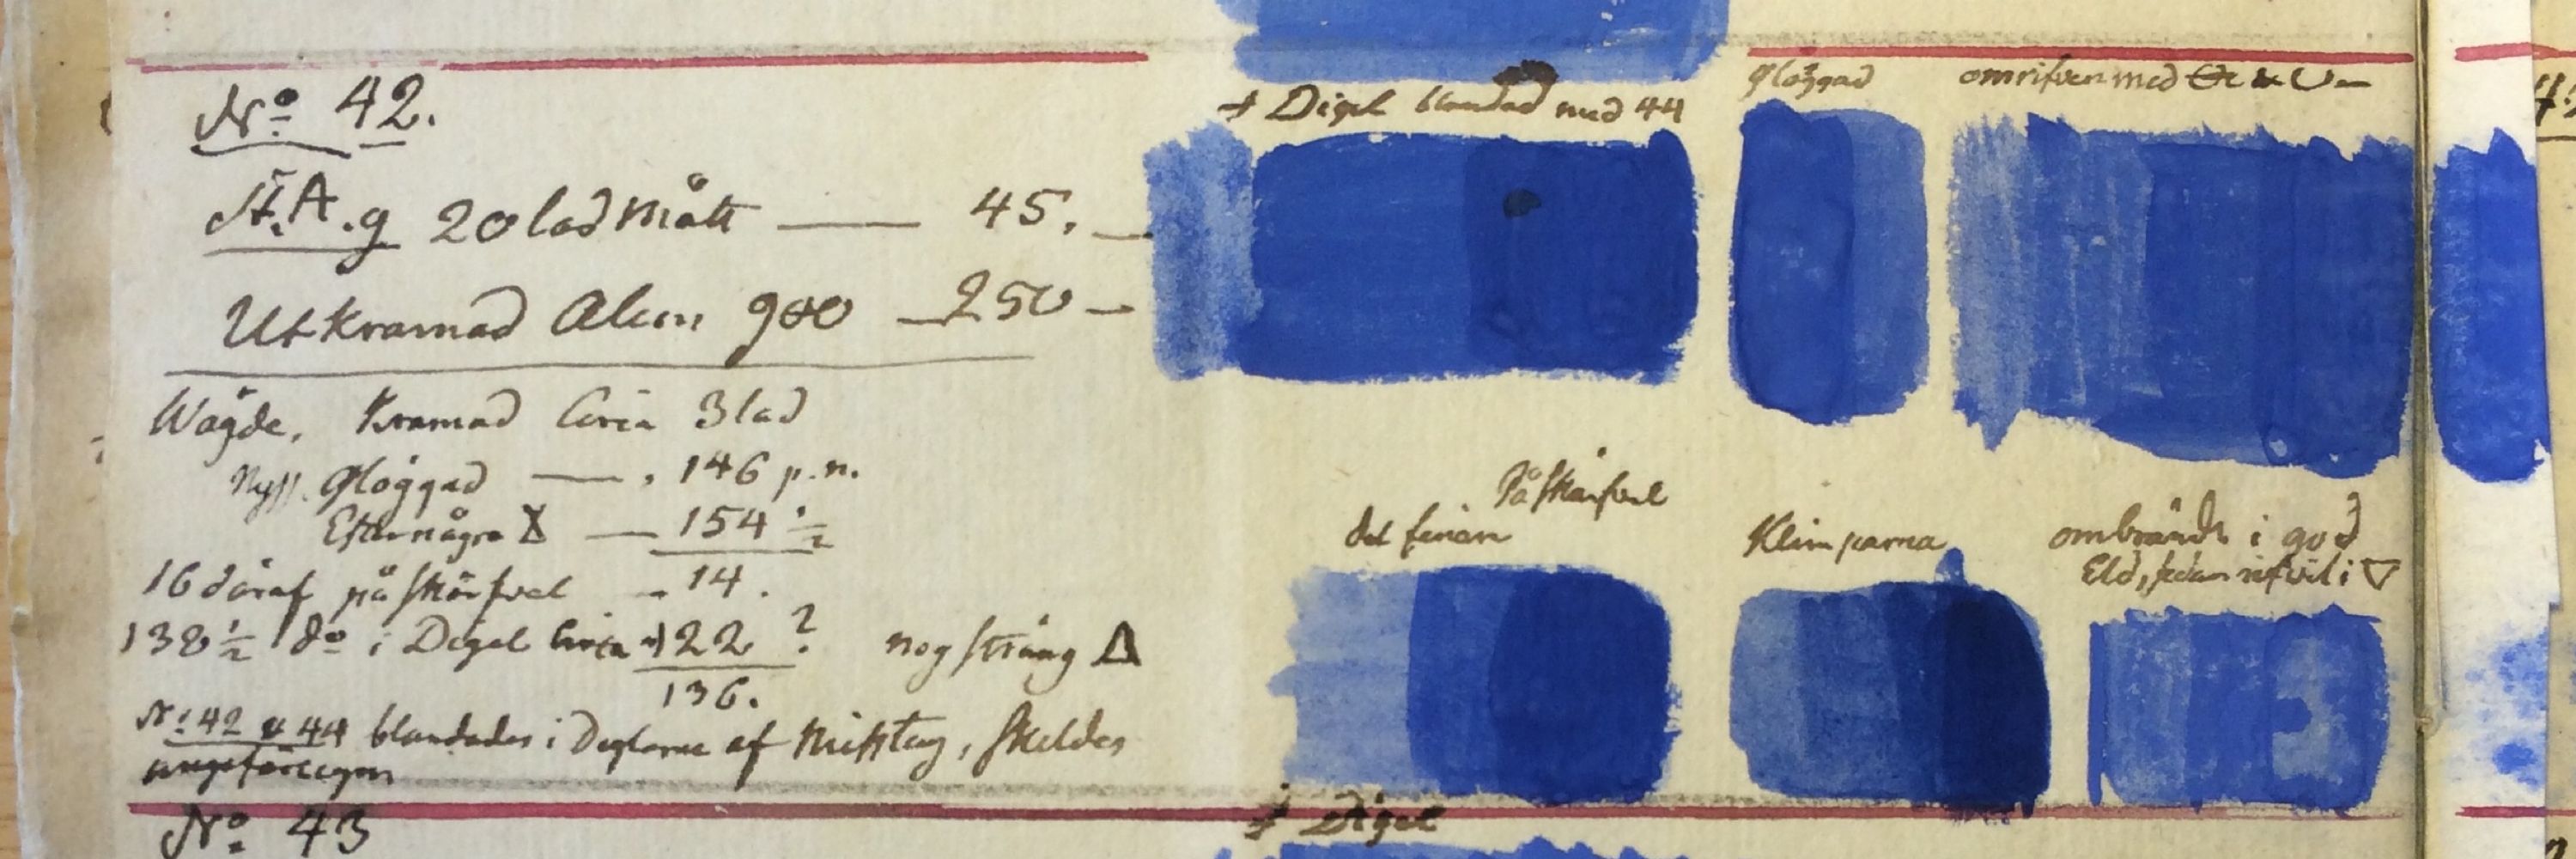 No 42.
St.A.g 20 lad Mått — 45. —
Utkramad Alun 900 — 250 —
Wägde, Kramad Circa 3 lad
Nyss. Glöggad — . 146 p.n.
Efter några — 154 1/2
16 däraf på skärfvel — 14.
138 1/2 do i Digel Circa 122 ? nog sträng △
136.
No 42 & 44 blandades i Deglarne af Misstag, skeldes
No 43
+ Digel blandad med 44
glöggad
omrifven med
På skärfvel
det finare
Klimparna
ombrändt i god
Eld, sedan rifvit i ▽
+ Digel